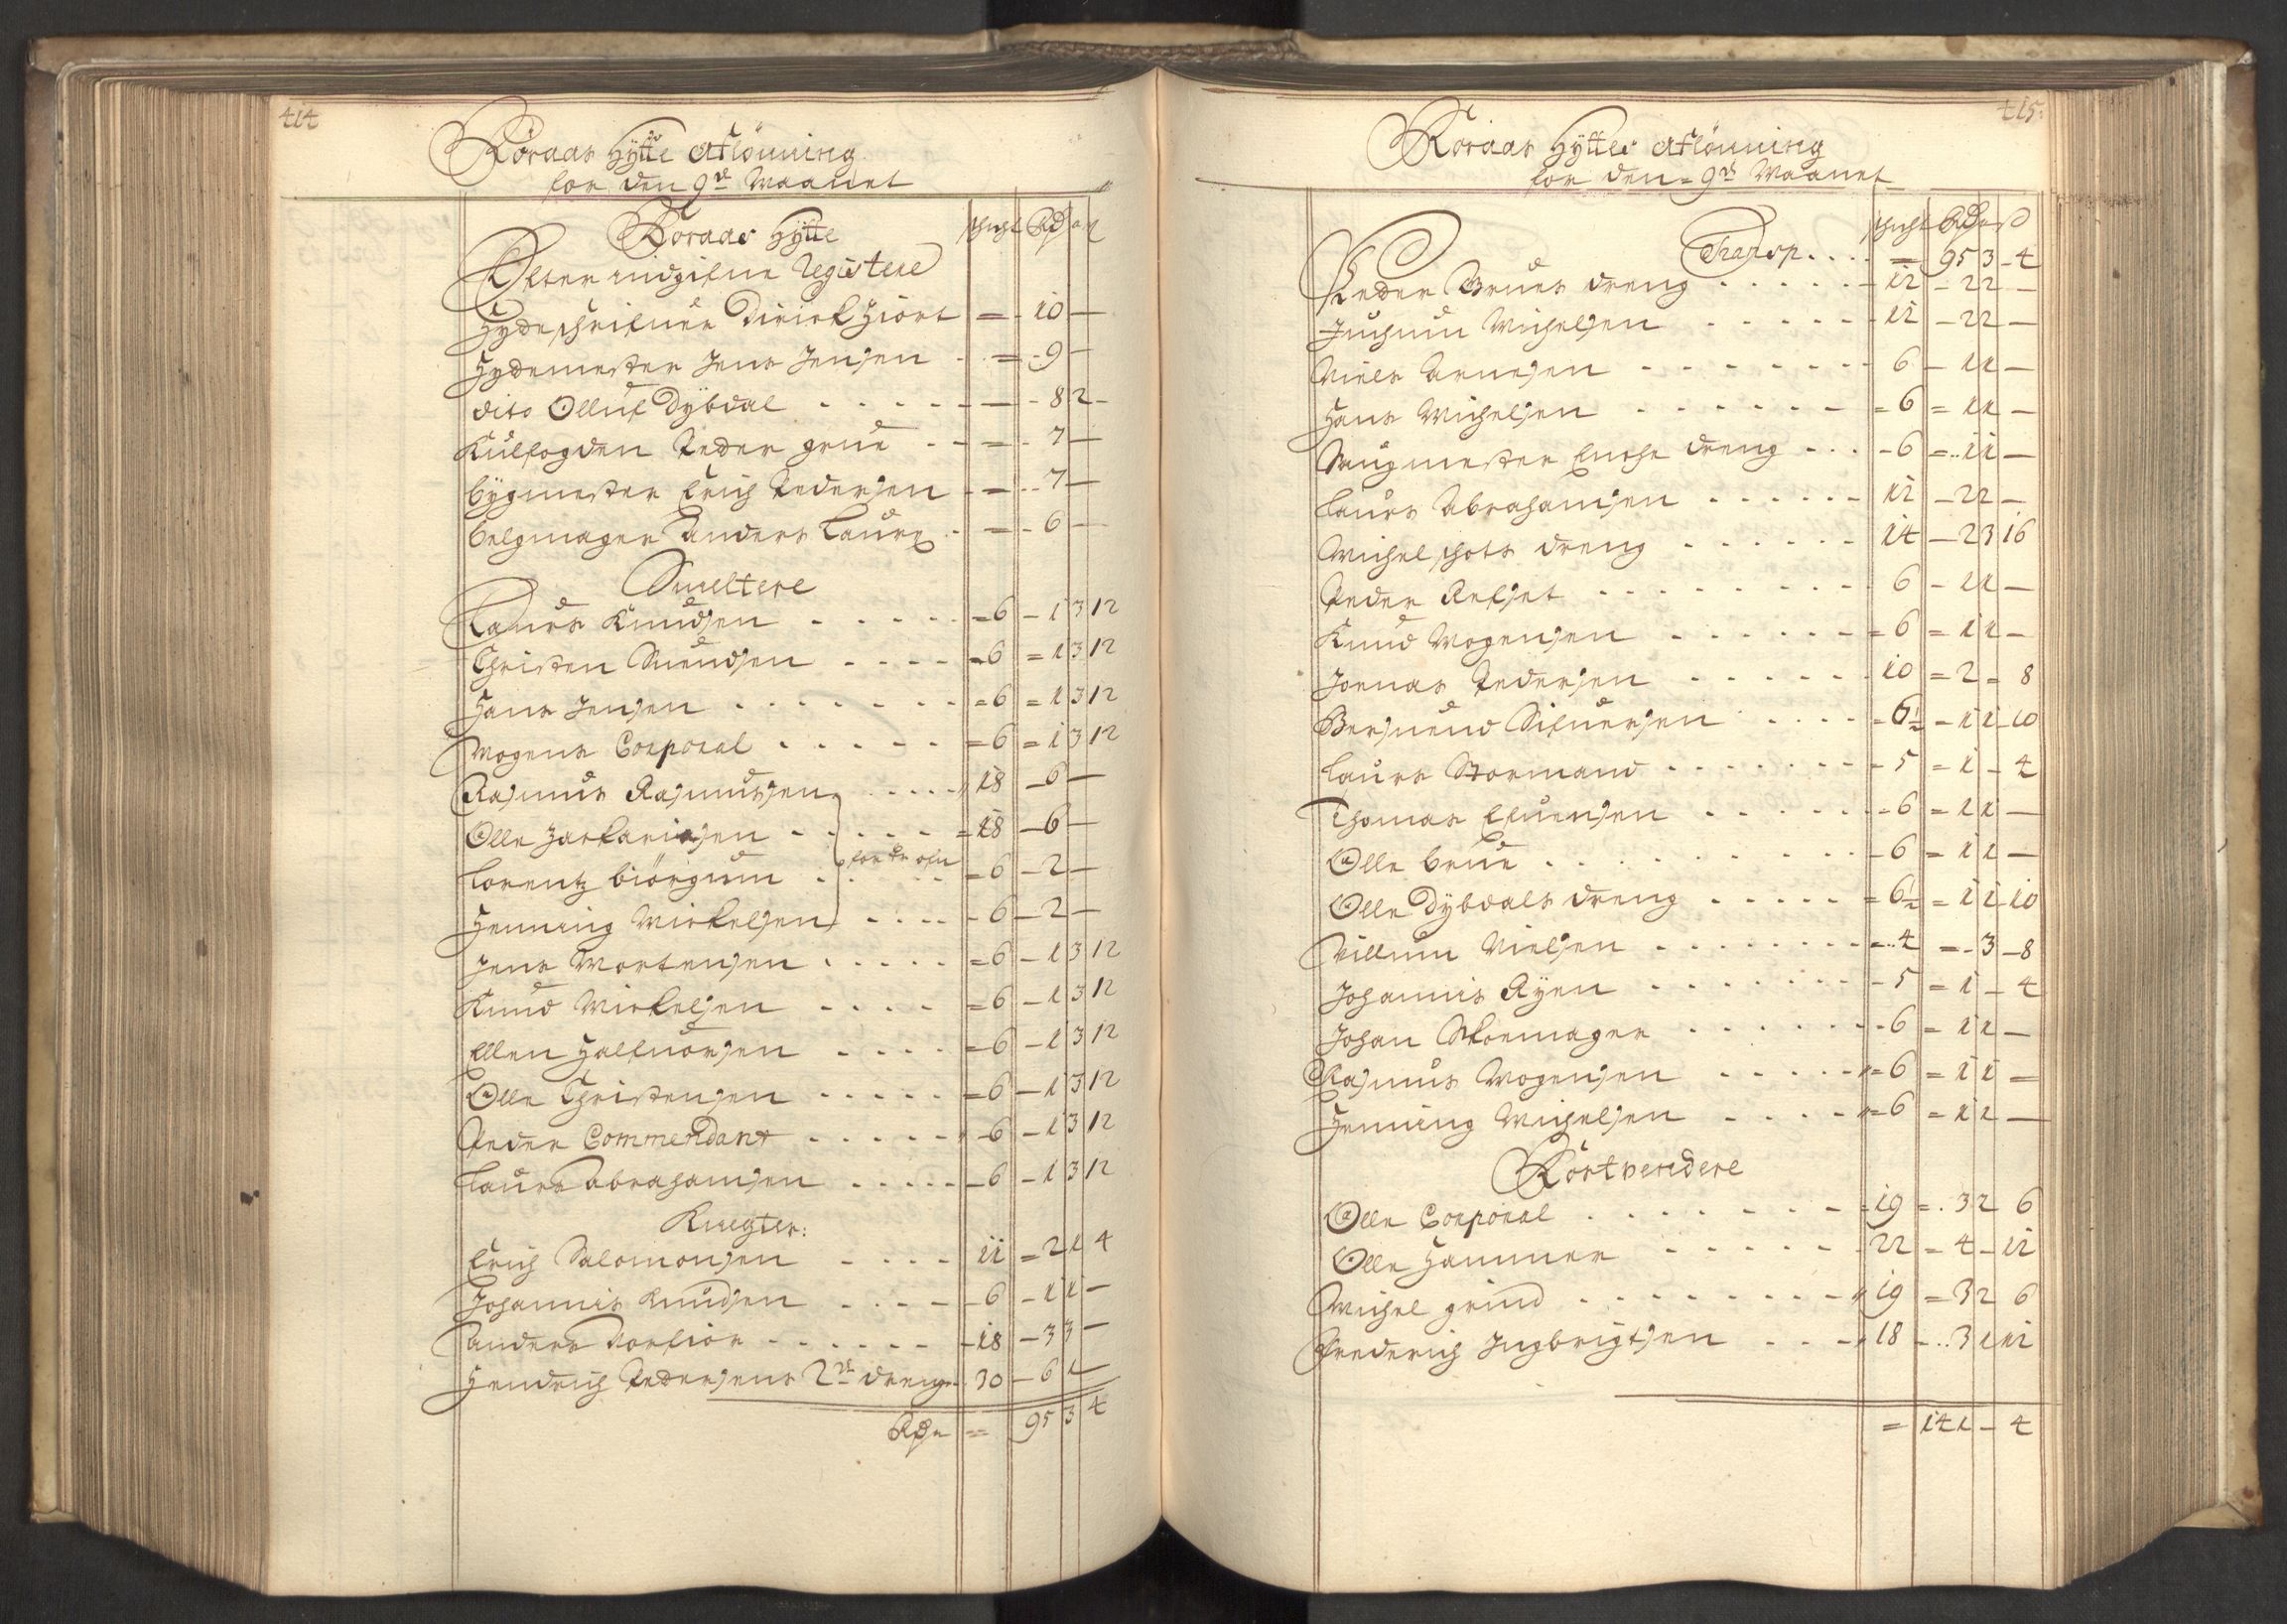 414
Röraas Hytte Aflönning
for den 9de Maanet
Röraas Hytte schicht Rdr ort ß
Efter indgifne Registere
Hydeschrifuer Dirick Hiort = - 10 —
Hydemester Jens Jensen - = - 9 —
dito Olluf Dybdal - - - - - — - 8 2 -
Kulfogden Peder grue - - = - 7 —
bygmester Erich Pedersen - = - 7 —
belgmager Anders Laurs. - = - 6 —
Smeltere
Laurs Knudsen - - - - - = 6 - 1 3 12
Christen Suendsen - - - - = 6 = 1 3 12
Hans Jensen - - - - - - - = 6 = 1 3 12
Mogens Corporal - - - - - = 6 = 1 3 12
Rasmus Rasmussen - - - - 18 - 6 —
Olle Zackariasen - - - - - = 18 - 6 —
Lorentz biörgum - for dr ofn - - = 6 - 2 —
Henning Mickelsen - - - - - 6 - 2 —
Jens Mortensen - - - - - = 6 - 1 3 12
Knud Mickelsen - - - - = 6 - 1 3 12
Ellen Halfuorsen - - - - = 6 - 1 3 12
Olle Christensen - - - - - = 6 - 1 3 12
Peder Commendant - - - - - - 6 - 1 3 12
Laurs Abrahamsen - - - - - - 6 - 1 3 12
Knegter:
Erich Salomonsen - - - - 11 = 2 1 4
Johannis Knudsen - - - - - 6 - 1 1 —
Anders Torfiör - - - - - - - 18 - 3 3 —
Hendrich Pedersens 2de drenge - 30 - 6 1 —
Rdr = 95 3 4
415:
Röraas Hyttes Aflönning
for den = 9de Maanet
schicht Rdr ort ß
Transp. . . . = 95 3 - 4
Peder Grues dreng - - - - - - 12 - 2 2 —
Juchum Michelsen - - - - - - 12 - 2 2 —
Niels Arnesen - - - - - - - - 6 - 1 1 —
Hans Michelsen - - - - - - - = 6 = 1 1 —
Saugmester Enche dreng - - - - 6 = 1 1 —
Laurs Abrahamsen - - - - - - 12 - 2 2 —
Michel schots dreng - - - - - - 14 - 2 3 16
Peder Refset - - - - - - - - - 6 - 1 1 —
Knud Mogensen - - - - - - = 6 = 1 1 —
Joenas Pedersen - - - - - - 10 = 2 - 8
Bersuend Sifuersen - - - - = 6½ = 1 1 - 10
Laurs Stormand - - - - - - - - 5 = 1 - 4
Thomas Efuensen - - - - - - - 6 = 1 1 —
Olle brue - - - - - - - - - - 6 = 1 1 —
Olle Dybdals dreng - - - - - = 6½ = 1 1 - 10
Villum Nielsen - - - - - - - - = 4 = - 3 - 8
Johannis Ryen - - - - - - - - 5 = 1 - 4
Johan Skoemager - - - - - - - 6 = 1 1 —
Rasmus Mogensen - - - - - = 6 = 1 1 —
Henning Michelsen - - - - = 6 = 1 1 —
Röstvendere
Olle Corporal - - - - - - - - 19 = 3 2 6
Olle Hammer - - - - - - 22 = 4 - 12
Michel grind - - - - - - - - - 19 = 3 2 6
Frederich Ingbrigtsen - - - 18 - 3 1 12
= 141 - 4